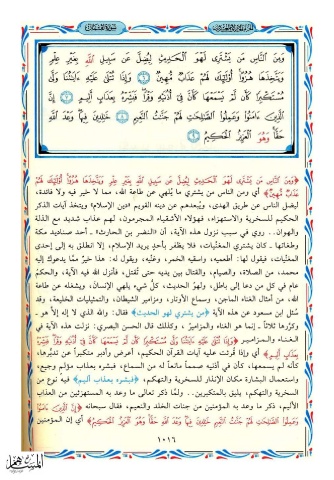 وَمِنَ النَّاسِ مَن يَشْتَرِي لَهْوَ الْحَدِيثِ لِيُضِلَّ عَن سَبِيلِ اللَّهِ بِغَيْرِ عِلْمٍ
وَيَتَّخِذَهَا هُزُوًا أُولَٰئِكَ لَهُمْ عَذَابٌ مُّهِينٌ ٦ وَإِذَا تُتْلَىٰ عَلَيْهِ آيَاتُنَا وَلَّىٰ
مُسْتَكْبِرًا كَأَن لَّمْ يَسْمَعْهَا كَأَنَّ فِي أُذُنَيْهِ وَقْرًا فَبَشِّرْهُ بِعَذَابٍ أَلِيمٍ ٧ إِنَّ
الَّذِينَ آمَنُوا وَعَمِلُوا الصَّالِحَاتِ لَهُمْ جَنَّاتُ النَّعِيمِ ٨ خَالِدِينَ فِيهَا وَعْدَ اللَّهِ
حَقًّا وَهُوَ الْعَزِيزُ الْحَكِيمُ ٩
﴿وَمِنَ النَّاسِ مَن يَشْتَرِي لَهْوَ الْحَدِيثِ لِيُضِلَّ عَن سَبِيلِ اللَّهِ بِغَيْرِ عِلْمٍ وَيَتَّخِذَهَا هُزُوًا أُولَٰئِكَ لَهُمْ
عَذَابٌ مُّهِينٌ﴾ أي ومن الناس من يشتري ما يُلهي عن طاعة الله، مما لا خير فيه ولا فائدة،
ليضل الناس عن طريق الهدى، ويُبعدهم عن دينه القويم «دين الإسلام» ويتخذ آيات الذكر
الحكيم للسخرية والاستهزاء، فهؤلاء الأشقياء المجرمون، لهم عذاب شديد مع الذلة
والهوان.. روي في سبب نزول هذه الآية، أن «النضر بن الحارث» ـ أحد صناديد مكة
وطغاتها ـ كان يشتري المغنيات، فلا يظفر بأحدٍ يريد الإسلام، إلا انطلق به إلى إحدى
المغنيات، فيقول لها: أطعميه، واسقيه الخمر، وغنيه، ويقول له: هذا خيرٌ مما يدعوك إليه
محمد، من الصلاة، والصيام، والقتال بين يديه حتى تُقتل، فأنزل الله فيه الآية، والحكمُ
عام في كل من دعا إلى باطل، ولهوُ الحديث: كلُّ شيء يلهي الإنسان، ويشغله عن طاعة
الله، من أمثال الغناء الماجن، وسماع الأوتار، ومزامير الشيطان، والتمثيليات الخليعة، وقد
سُئل ابن مسعود عن هذه الآية ﴿من يشتري لهو الحديث﴾ فقال: والله الذي لا إله إلا هو ـ
وكررها ثلاثاً ـ إنما هو الغناء والمزامير، وكذلك قال الحسن البصري: نزلت هذه الآية في
الغناء والمزامير ﴿وَإِذَا تُتْلَىٰ عَلَيْهِ آيَاتُنَا وَلَّىٰ مُسْتَكْبِرًا كَأَن لَّمْ يَسْمَعْهَا كَأَنَّ فِي أُذُنَيْهِ وَقْرًا فَبَشِّرْهُ
بِعَذَابٍ أَلِيمٍ﴾ أي وإذا قُرئت عليه آيات القرآن الحكيم، أعرض وأدبر متكبراً عن تدبُّرها،
كأنه لم يسمعها، كأن في أذنيه صمماً مانعاً له من السماع، فبشره بعذاب مؤلم وجيع،
واستعمال البشارة مكان الإنذار للسخرية والتهكم، ﴿فبشره بعذاب أليم﴾ فيه نوع من
السخرية والتهكم، يليق بالمتكبرين.. ولمَّا ذكر تعالى ما وعد به المستهزئين من العذاب
الأليم، ذكر ما وعد به المؤمنين من جنات الخلد والنعيم، فقال سبحانه ﴿إِنَّ الَّذِينَ آمَنُوا
وَعَمِلُوا الصَّالِحَاتِ لَهُمْ جَنَّاتُ النَّعِيمِ خَالِدِينَ فِيهَا وَعْدَ اللَّهِ حَقًّا وَهُوَ الْعَزِيزُ الْحَكِيمُ﴾ أي إن المؤمنين
١٠١٦